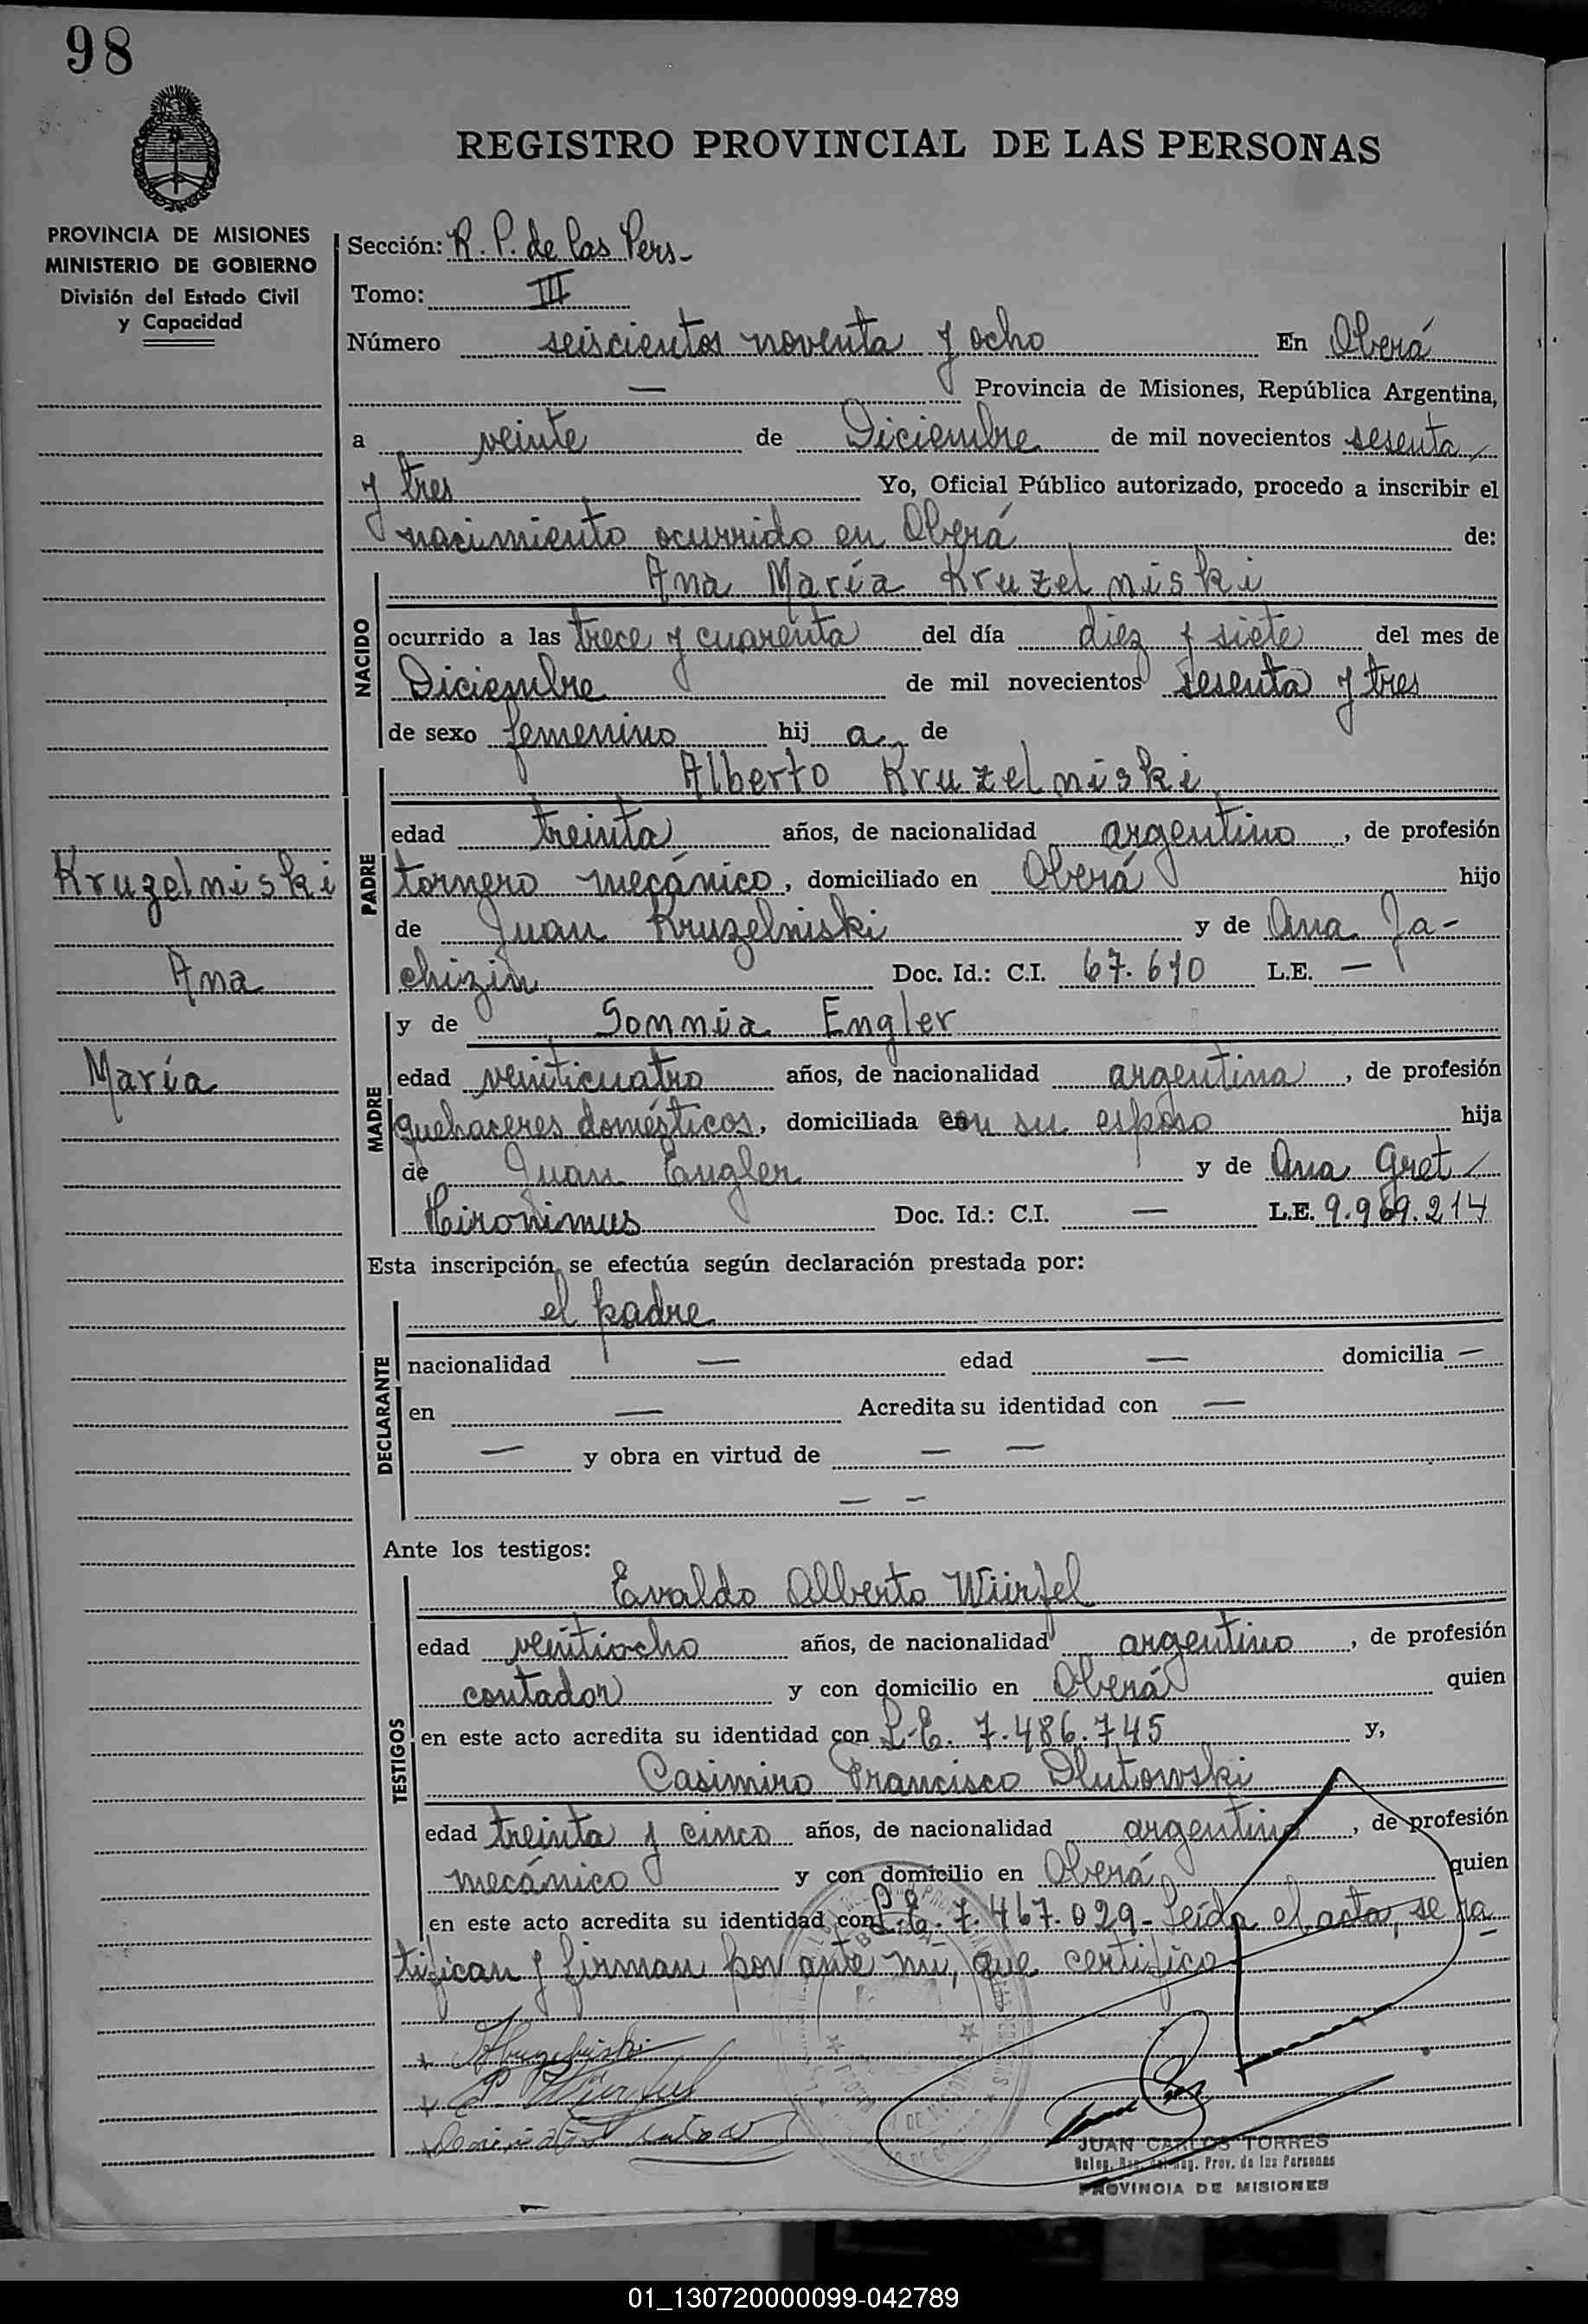 98
REGISTRO PROVINCIAL DE LAS PERSONAS
PROVINCIA DE MISIONES
MINISTERIO DE GOBIERNO
División del Estado Civil
y Capacidad
Sección: R. P. de las Pers-
Tomo: III
Número seiscientos noventa y ocho En Oberá
— Provincia de Misiones, República Argentina,
a veinte de Diciembre de mil novecientos sesenta
y tres Yo, Oficial Público autorizado, procedo a inscribir el
nacimiento ocurrido en Oberá de:
NACIDO
Ana María Kruzelniski
ocurrido a las trece y cuarenta del día diez y siete del mes de
Diciembre de mil novecientos sesenta y tres
de sexo femenino hij a de
PADRE
Alberto Kruzelniski
edad treinta años, de nacionalidad argentino, de profesión
tornero mecánico, domiciliado en Oberá hijo
de Juan Kruzelniski y de Ana Ja-
chizin Doc. Id.: C.I. 67.610 L.E. —
Kruzelniski
Ana
María
MADRE
y de Sonnia Engler
edad veinticuatro años, de nacionalidad argentina, de profesión
quehaceres domésticos, domiciliada con su esposo hija
de Juan Engler y de Ana Gret
Hironimus Doc. Id.: C.I. — L.E. 9.969.214
Esta inscripción se efectúa según declaración prestada por:
DECLARANTE
el padre
nacionalidad — edad — domicilia —
en — Acredita su identidad con —
— y obra en virtud de — —
— —
Ante los testigos:
TESTIGOS
Evaldo Alberto Würfel
edad veintiocho años, de nacionalidad argentino, de profesión
contador y con domicilio en Oberá quien
en este acto acredita su identidad con L.E. 7.486.745 y,
Casimiro Francisco Dlutowski
edad treinta y cinco años, de nacionalidad argentino, de profesión
mecánico y con domicilio en Oberá quien
en este acto acredita su identidad con L.E. 7.467.029- Leída el acta, se ra-
tifican y firman por ante mí, que certifico
JUAN CARLOS TORRES
Prov. de las Personas
PROVINCIA DE MISIONES
01_130720000099-042789